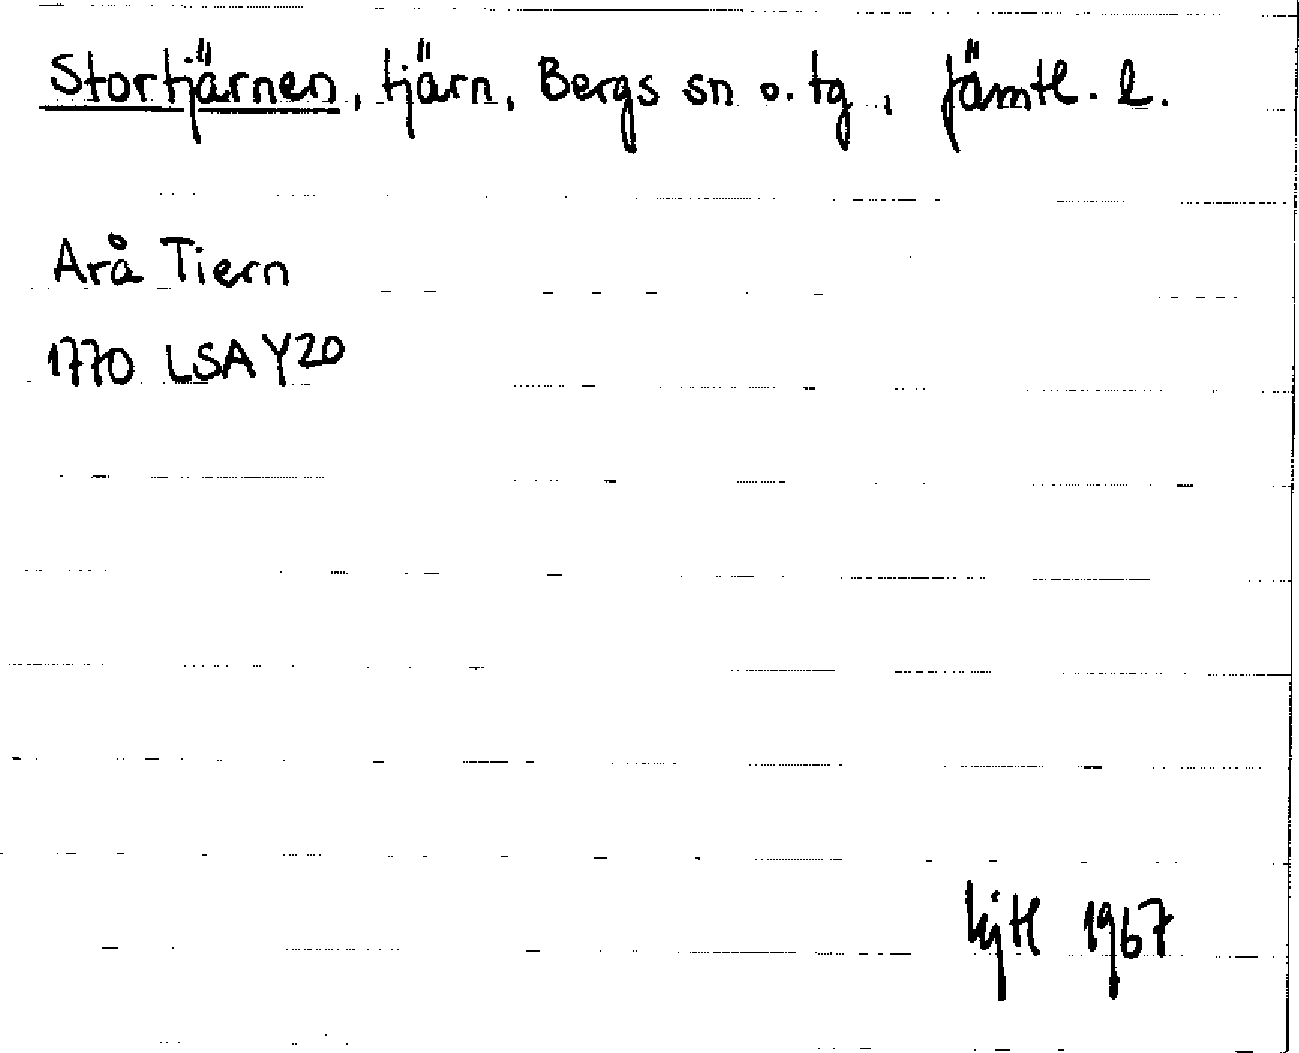 Stortjärnen, tjärn, Bergs sn o. tg., Jämtl. l.
Arå Tiern
1770 LSA Y20
1967